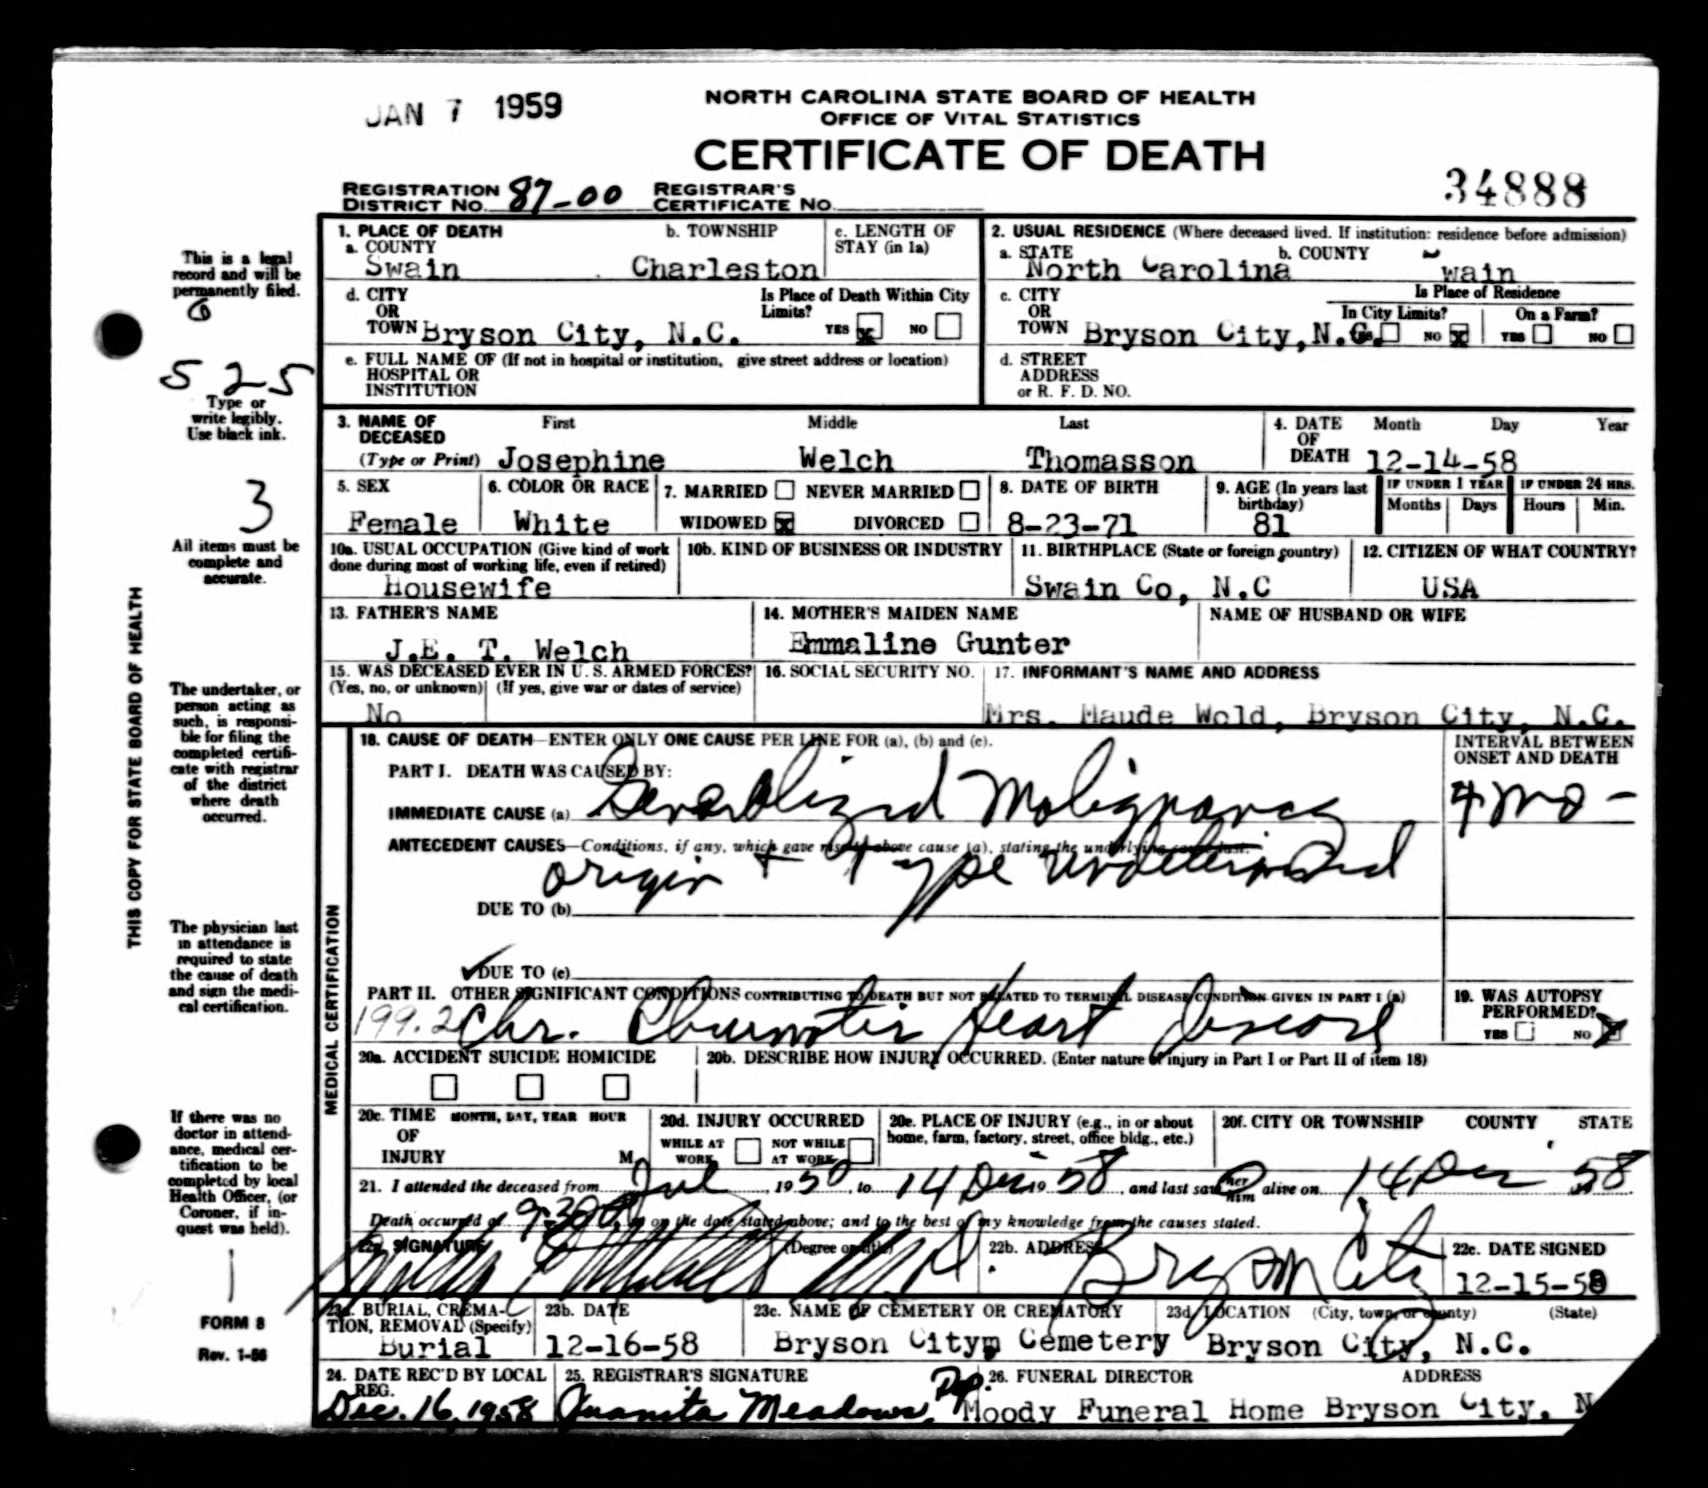 JAN 7 1959
NORTH CAROLINA STATE BOARD OF HEALTH
OFFICE OF VITAL STATISTICS
CERTIFICATE OF DEATH
34888
REGISTRATION DISTRICT NO. 87-00 REGISTRAR'S CERTIFICATE NO.
This is a legal record and will be permanently filed.
6
5 2 5
Type or write legibly. Use black ink.
3
All items must be complete and accurate.
THIS COPY FOR STATE BOARD OF HEALTH
The undertaker, or person acting as such, is responsible for filing the completed certificate with registrar of the district where death occurred.
The physician last in attendance is required to state the cause of death and sign the medical certification.
If there was no doctor in attendance, medical certification to be completed by local Health Officer, (or Coroner, if inquest was held).
1
FORM 8
Rev. 1-56
1. PLACE OF DEATH
a. COUNTY Swain
b. TOWNSHIP Charleston
c. LENGTH OF STAY (in 1a)
2. USUAL RESIDENCE (Where deceased lived. If institution: residence before admission)
a. STATE North Carolina
b. COUNTY Swain
d. CITY OR TOWN Bryson City, N.C.
Is Place of Death Within City Limits? YES x NO
c. CITY OR TOWN Bryson City, N.C.
Is Place of Residence
In City Limits? YES NO x On a Farm? YES NO
e. FULL NAME OF (If not in hospital or institution, give street address or location) HOSPITAL OR INSTITUTION
d. STREET ADDRESS or R. F. D. NO.
3. NAME OF DECEASED (Type or Print)
First Middle Last
Josephine Welch Thomasson
4. DATE OF DEATH Month Day Year
12-14-58
5. SEX Female
6. COLOR OR RACE White
7. MARRIED NEVER MARRIED
WIDOWED x DIVORCED
8. DATE OF BIRTH 8-23-71
9. AGE (In years last birthday) 81
IF UNDER 1 YEAR Months Days
IF UNDER 24 HRS. Hours Min.
10a. USUAL OCCUPATION (Give kind of work done during most of working life, even if retired) Housewife
10b. KIND OF BUSINESS OR INDUSTRY
11. BIRTHPLACE (State or foreign country) Swain Co, N.C
12. CITIZEN OF WHAT COUNTRY? USA
13. FATHER'S NAME J.E. T. Welch
14. MOTHER'S MAIDEN NAME Emmaline Gunter
NAME OF HUSBAND OR WIFE
15. WAS DECEASED EVER IN U. S. ARMED FORCES?
(Yes, no, or unknown) (If yes, give war or dates of service)
No
16. SOCIAL SECURITY NO.
17. INFORMANT'S NAME AND ADDRESS
Mrs. Maude Wold, Bryson City, N.C.
MEDICAL CERTIFICATION
18. CAUSE OF DEATH—ENTER ONLY ONE CAUSE PER LINE FOR (a), (b) and (c).
INTERVAL BETWEEN ONSET AND DEATH
PART I. DEATH WAS CAUSED BY:
IMMEDIATE CAUSE (a) Generalized Malignancy 4 mo -
ANTECEDENT CAUSES—Conditions, if any, which gave rise to above cause (a), stating the underlying cause last.
origin + type undetermined
DUE TO (b)
DUE TO (c)
PART II. OTHER SIGNIFICANT CONDITIONS CONTRIBUTING TO DEATH BUT NOT RELATED TO TERMINAL DISEASE CONDITION GIVEN IN PART I (a)
199.2 Chr. Rheumatic Heart Disease
19. WAS AUTOPSY PERFORMED? YES NO x
20a. ACCIDENT SUICIDE HOMICIDE
20b. DESCRIBE HOW INJURY OCCURRED. (Enter nature of injury in Part I or Part II of item 18)
20c. TIME OF INJURY MONTH, DAY, YEAR HOUR M.
20d. INJURY OCCURRED WHILE AT WORK NOT WHILE AT WORK
20e. PLACE OF INJURY (e.g., in or about home, farm, factory, street, office bldg., etc.)
20f. CITY OR TOWNSHIP COUNTY STATE
21. I attended the deceased from Jul, 1950, to 14 Dec 1958, and last saw her him alive on 14 Dec 58.
Death occurred at 9:30 m on the date stated above; and to the best of my knowledge from the causes stated.
22a. SIGNATURE (Degree or title) M D.
22b. ADDRESS Bryson City
22c. DATE SIGNED 12-15-58
23a. BURIAL, CREMATION, REMOVAL (Specify) Burial
23b. DATE 12-16-58
23c. NAME OF CEMETERY OR CREMATORY Bryson Citym Cemetery
23d. LOCATION (City, town, or county) (State) Bryson City, N.C.
24. DATE REC'D BY LOCAL REG. Dec. 16, 1958
25. REGISTRAR'S SIGNATURE Juanita Meadows, Dep.
26. FUNERAL DIRECTOR ADDRESS
Moody Funeral Home Bryson City, N